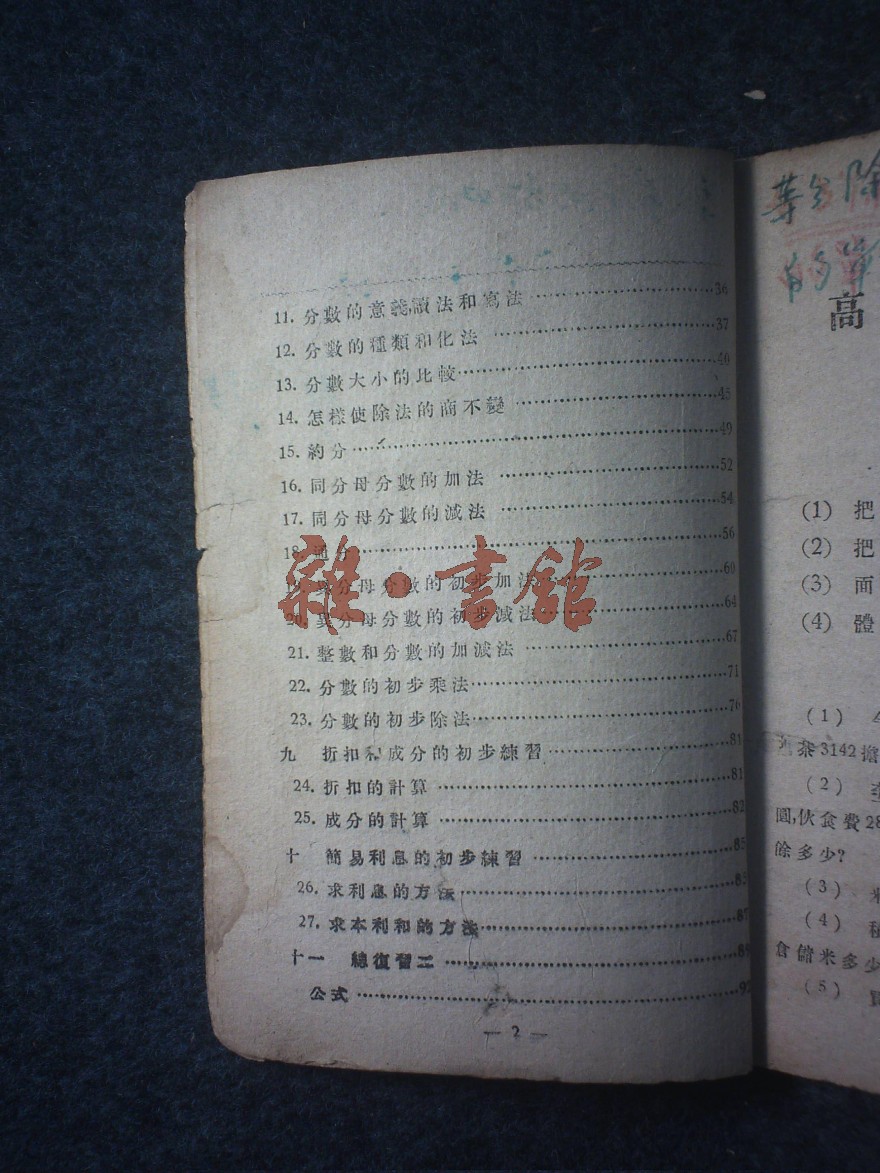 11. 分數的意義讀法和寫法 …… 36
12. 分數的種類和化法 …… 37
13. 分數大小的比較 …… 40
14. 怎樣使除法的商不變 …… 45
15. 約分 …… 49
16. 同分母分數的加法 …… 52
17. 同分母分數的減法 …… 54
18. 通分 …… 56
19. 異分母分數的初步加法 …… 60
20. 異分母分數的初步減法 …… 64
21. 整數和分數的加減法 …… 67
22. 分數的初步乘法 …… 71
23. 分數的初步除法 …… 76
九 折扣和成分的初步練習 …… 81
24. 折扣的計算 …… 81
25. 成分的計算 …… 82
十 簡易利息的初步練習 …… 85
26. 求利息的方法 …… 85
27. 求本利和的方法 …… 87
十一 總復習二 …… 89
公式 …… 92
— 2 —
雜·書館
除
高
(1) 把
(2) 把
(3) 面
(4) 體
(1)
茶3142擔
(2)
圓,伙食費28
餘多少?
(3)
(4)
倉儲米多少
(5)